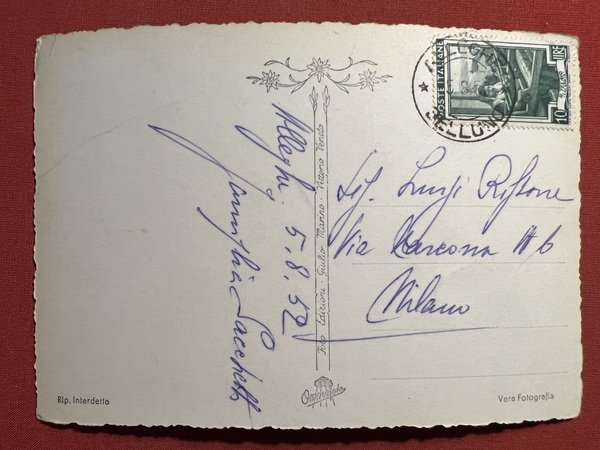 Alleghe. 5.8.52
Famiglia Sacchetti
Foto Edizioni - Giulio Marino - Vittorio Veneto
POSTE ITALIANE
10 LIRE
BELLUNO
Sig. Luigi
Via 16
Milano
Rip. Interdetta
Vera Fotografia